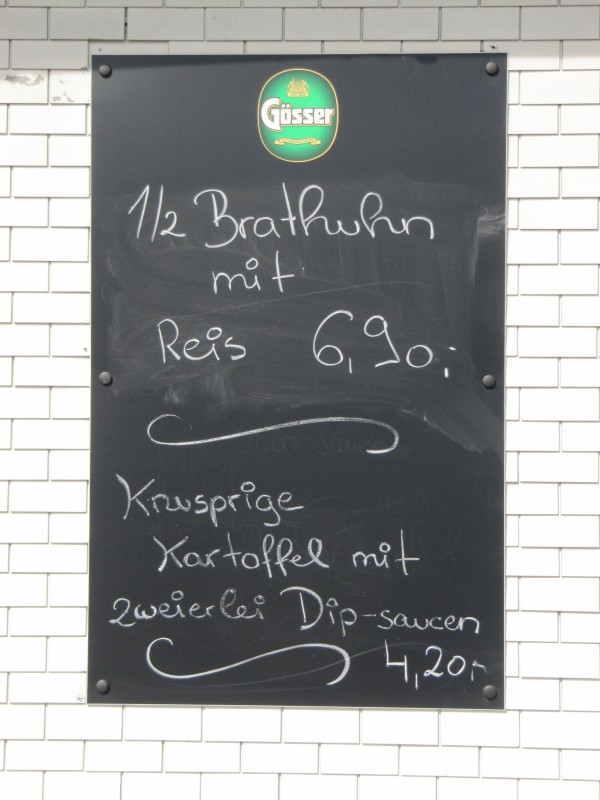 Gösser
1/2 Brathuhn
mit
Reis 6,90,-
Knusprige
Kartoffel mit
2weierlei Dip-saucen
4,20,-